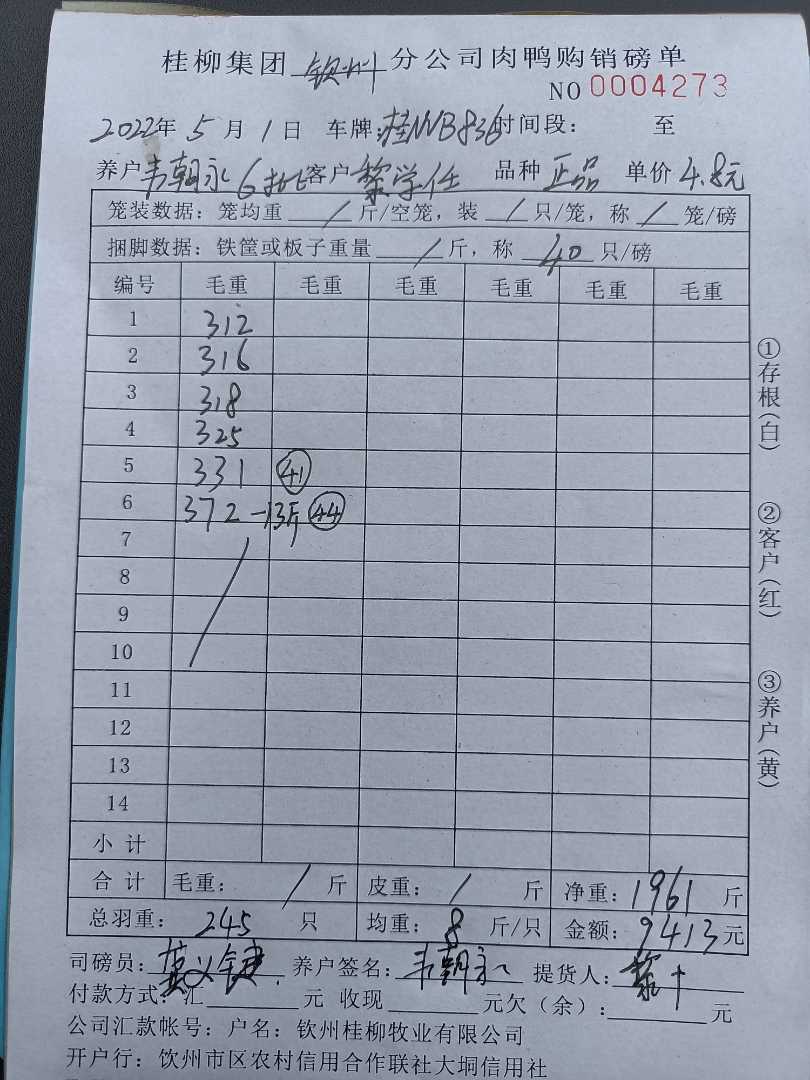 桂柳集团 钦州 分公司肉鸭购销磅单
NO 0004273
2022年 5 月 1 日 车牌:桂NNB836 时间段: 至
养户 韦朝永 6批 客户 黎学任 品种 正品 单价 4.8元
笼装数据:笼均重 / 斤/空笼,装 / 只/笼,称 / 笼/磅
捆脚数据:铁筐或板子重量 / 斤,称 40 只/磅
编号 毛重 毛重 毛重 毛重 毛重 毛重
1 312
2 316
3 318
4 325
5 331 41
6 372 -13斤 44
7
8
9
10
11
12
13
14
小计
合计 毛重: / 斤 皮重: / 斤 净重: 1961 斤
总羽重: 245 只 均重: 8 斤/只 金额: 9413 元
司磅员: 黄 养户签名: 韦朝永 提货人: 黎
付款方式:汇 元 收现 元欠(余): 元
公司汇款帐号:户名:钦州桂柳牧业有限公司
开户行:钦州市区农村信用合作联社大垌信用社
①存根(白)
②客户(红)
③养户(黄)